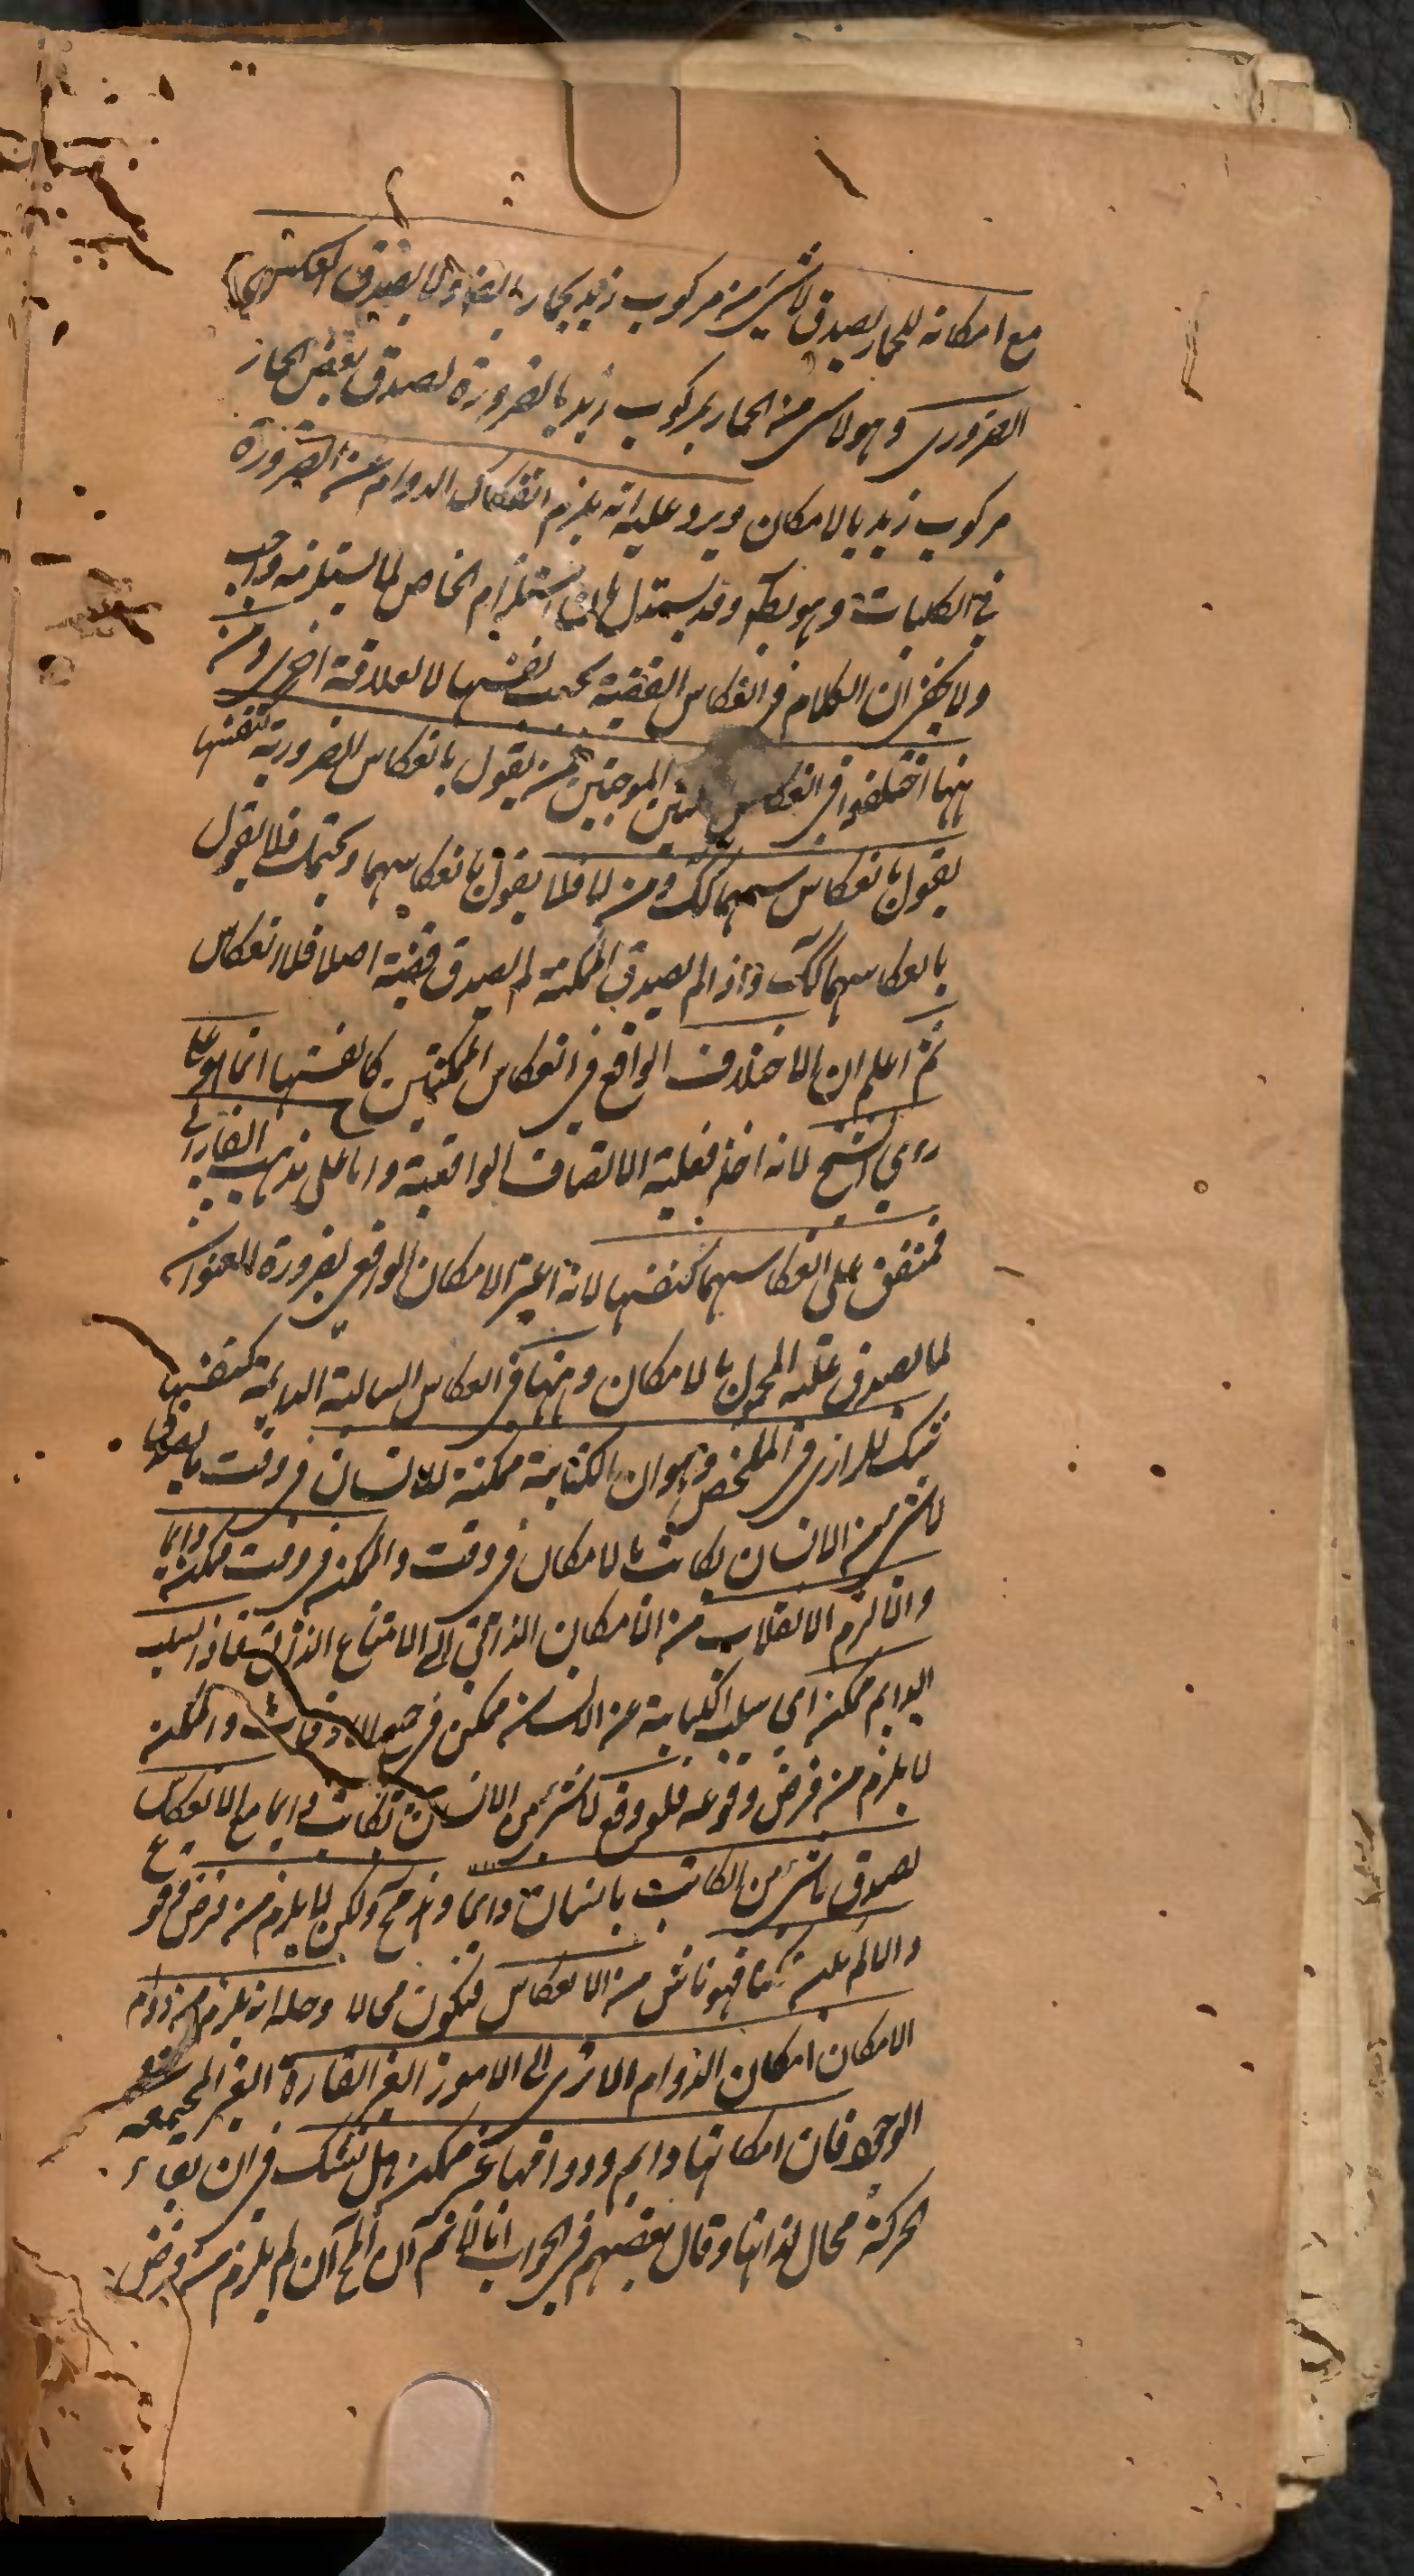 مع امكانه للحمار يصدق لا شيء من مركوب زيد بحمار بالضرورة ولا يصدق العكس
الضروري وهو لا شي من الحمار بمركوب زيد بالضرورة لصدق بعض الحمار
مركوب زيد بالامكان ويرد عليه انه يلزم انفكاك الدوام عن الضرورة
في الكليات وهو بط وقد يستدل بان استلزام الخاص لما يستلزمه واجب
ولا يخفى ان الكلام في انعكاس القضية بحسب نفسها لا لعلاقة اخرى ومن
ههنا اختلفوا في انعكاس الموجبتين فمن يقول بانعكاس الضرورية كنفسها
يقول بانعكاسهما كك ومن لا فلا يقول بانعكاسهما فلا يقول
بانعكاسهما كك واذا لم يصدق الممكنة لم يصدق قضية اصلا فلا انعكاس
ثم اعلم ان الاختلاف الواقع في انعكاس الممكنتين كانفسهما انما هو على
راي الشيخ لانه اخذ فعلية الاتصاف الواقعية واما على مذهب الفارابي
فمتفق على انعكاسهما كنفسها لانه اعتبر الامكان الواقعي لضرورة العنوان
لما يصدق عليه المحمول بالامكان وههنا في انعكاس السالبة الدايمة كنفسها
شك للرازي في الملخص وهو ان الكتابة ممكنة للانسان في وقت يصدق
لا شي من الانسان بكاتب بالامكان في وقت والممكن في وقت ممكن دايما
والا لزم الانقلاب من الامكان الذاتي الى الامتناع الذاتي فاذن السلب
الدايم ممكن اي سلب الكتابة عن الانسان ممكن في جميع الاوقات والممكن
لا يلزم من فرض وقوعه فلو وقع لا شي من الانسان بكاتب دايما مع الانعكاس
لصدق لا شيء من الكاتب بانسان دايما وهذا مح ولكن لا يلزم من فرض وقوع
والا لم يكن ممكنا فهو ناش من الانعكاس فيكون محالا وحله انه لا يلزم من دوام
الامكان امكان الدوام الا ترى الى الامور الغير القارة الغير المجتمعة
الوجود فان امكانها دايم ودوامها غير ممكن هل تشك في ان بقاء
الحركة محال لذاتها وقال بعضهم في الجواب انا لا نم ان المح ان لم يلزم من فرض